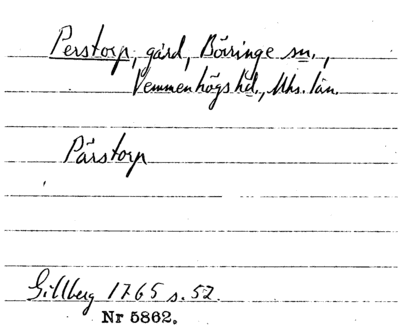 Perstorp, gård, Börringe sn.,
Vemmenhögs hd., Mhs. län.
Pärstorp
Gillberg 1765 s. 52.
Nr 5862.